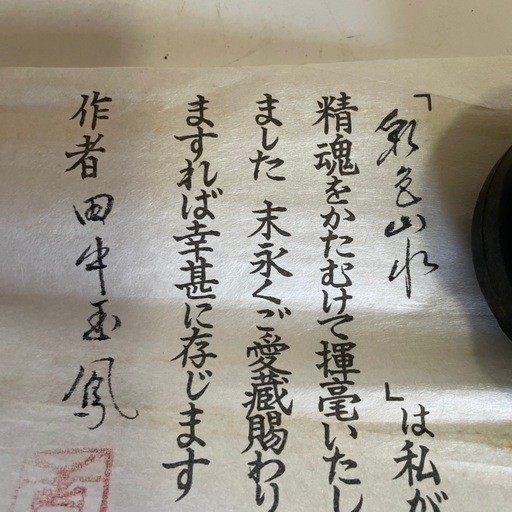 「彩色山水」は私が
精魂をかたむけて揮毫いたし
ました 末永くご愛蔵賜わり
ますれば幸甚に存じます
作者 田中玉鳳